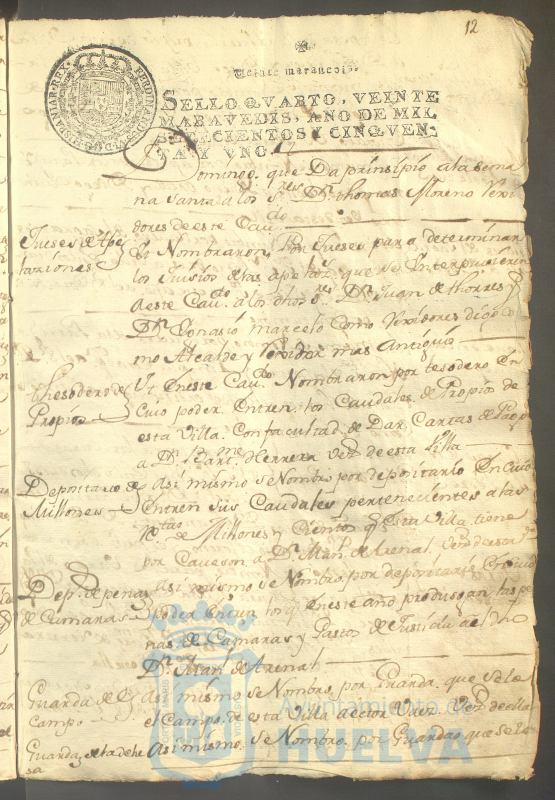 12
Veinte maravedis.
SELLO QVARTO, VEINTE
MARAVEDIS, AÑO DE MIL
SETECIENTOS Y CINQVEN-
TA Y VNO.
FERDINANDVS VI D G HISPANIAR REX
Domingo, que Da principio a la sema
na Santa a los Sres Dn Thomas Moreno Rexi
dores de este Cavdo
Jueses de Ape
laziones
Yt Nombraron, Por Jueses para determinar
los Juisios de las apelazs que se Interpusieren
a este Cavdo a los dhos Sres Dn Juan de thorres y
Dn Ignasio Marcelo Como Rexidores
mo Alcalde y Rexidor mas Antiguo
thesodero de
Propios
Yt Eneste Cavdo Nombraron por tesodero En
Cuio poder Entren, los Caudales de Propios de
esta Villa. Con facultad de Dar Cartas de Pago
a Dn Barme Herrera Vezo de esta Villa
Depositario de
Millones
Asi mismo se Nombro por depositario En cuio
Entren sus Caudales pertenecientes a las
Rtas de Millones y Cientos q Esta Villa tiene
por Caveson, a Dn Man de Arenal, Vezo de esta
Dep. de penas
de Camaras
Asi mismo se Nombro, por depositario En cuio
Poder Entren los q Eneste año produsgan las pe
nas de Camaras y Gastos de Justicia a
Dn Man de Arenal
Guarda de
Campo
Asi mismo se Nombro, por Guarda, que sele
el Campo de esta Villa a Vaez Vezo de ella
Guarda de la dehe
sa
Asi mismo. se Nombro. por Guarda que sea
Ayuntamiento de
HUELVA